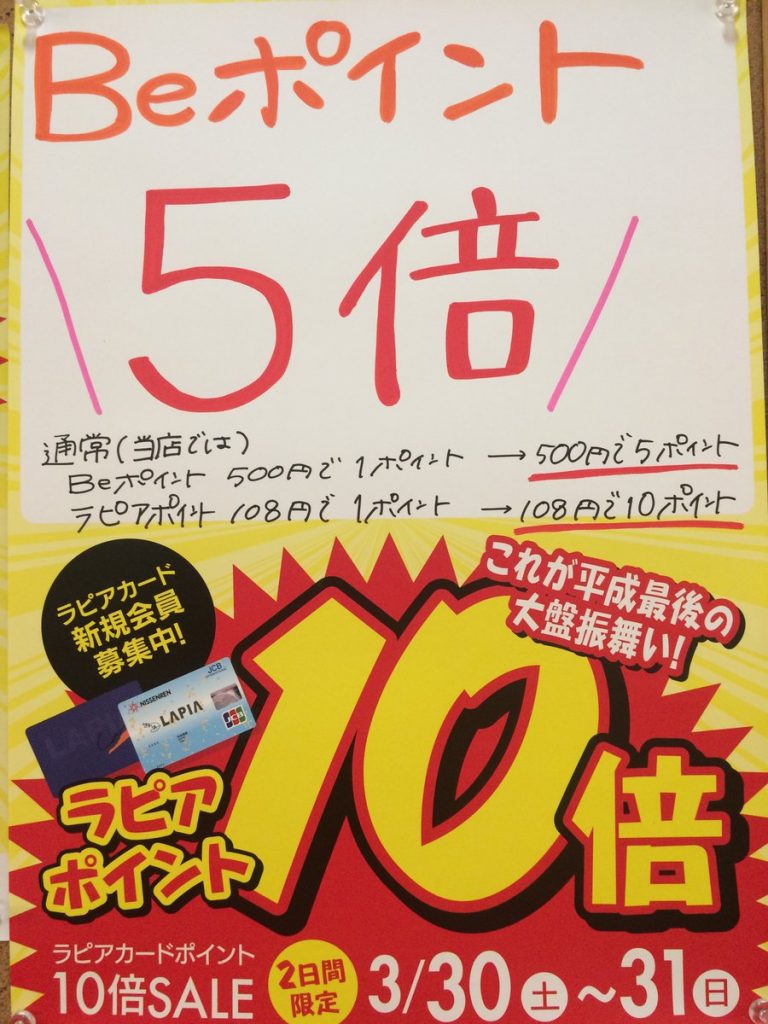 Beポイント
5倍
通常(当店では)
Beポイント 500円で 1ポイント → 500円で5ポイント
ラピアポイント 108円で 1ポイント → 108円で10ポイント
ラピアカード
新規会員
募集中!
これが平成最後の
大盤振舞い!
JCB
NISSENREN
LAPIA
JCB
LAPIA
ラピア
ポイント
10倍
ラピアカードポイント
10倍SALE
2日間
限定
3/30土~31日